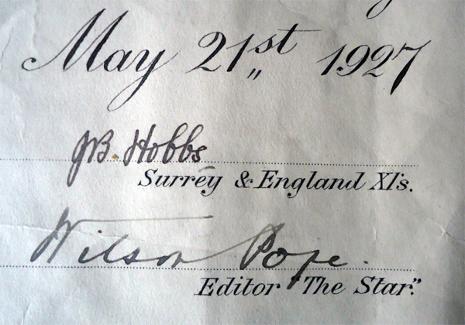 May 21st 1927
JB. Hobbs
Surrey & England XI's.
Wilson Pope.
Editor "The Star".